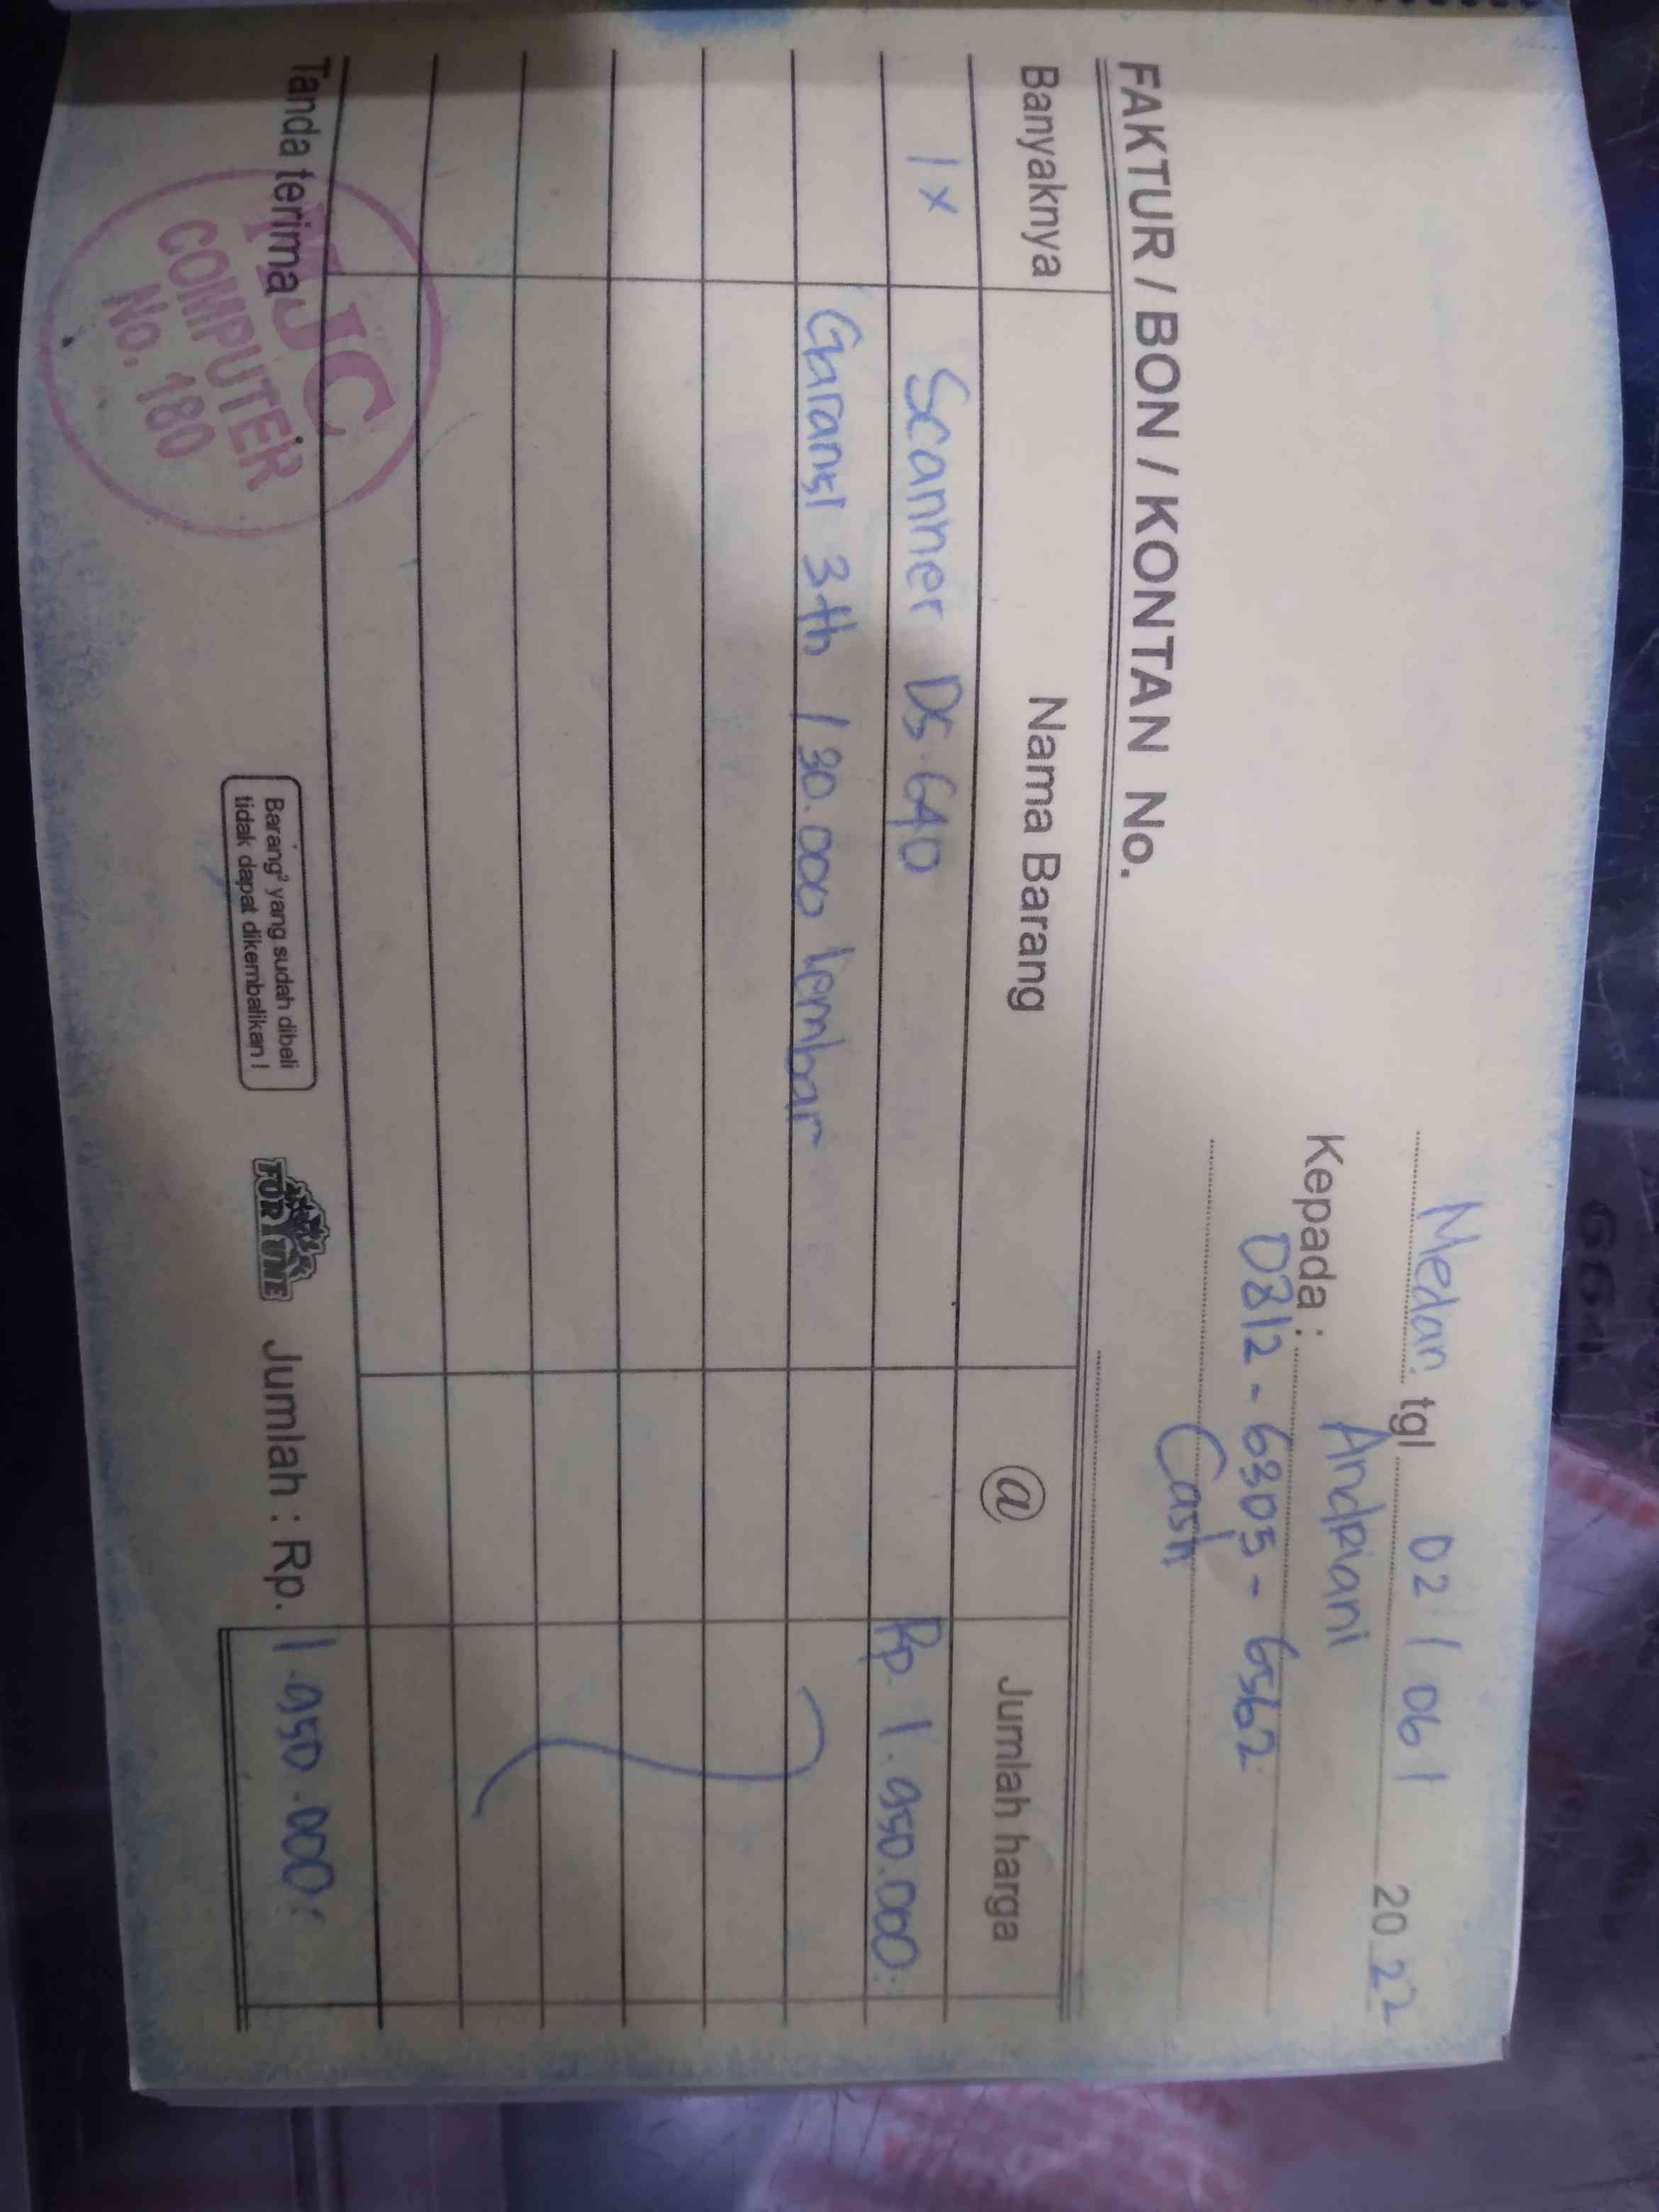 Medan tgl 02 / 06 / 2022
Kepada : Andriani
0812 - 6305 - 6562
Cash
FAKTUR / BON / KONTAN No.
Banyaknya Nama Barang @ Jumlah harga
1 x Scanner DS-640 Rp. 1.950.000
Garansi 3th / 30.000 lembar
Tanda terima Jumlah : Rp. 1.950.000
Barang² yang sudah dibeli
tidak dapat dikembalikan !
FORTUNE
JC
COMPUTER
No. 180